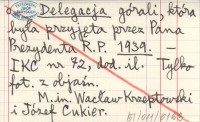 Delegacja górali, która
była przyjęta przez Pana
Prezydenta R.P. 1939. –
IKC nr 72, dod. il. Tylko
fot. z objaśn.
M.in. Wacław Krzeptowski
i Józef Cukier.